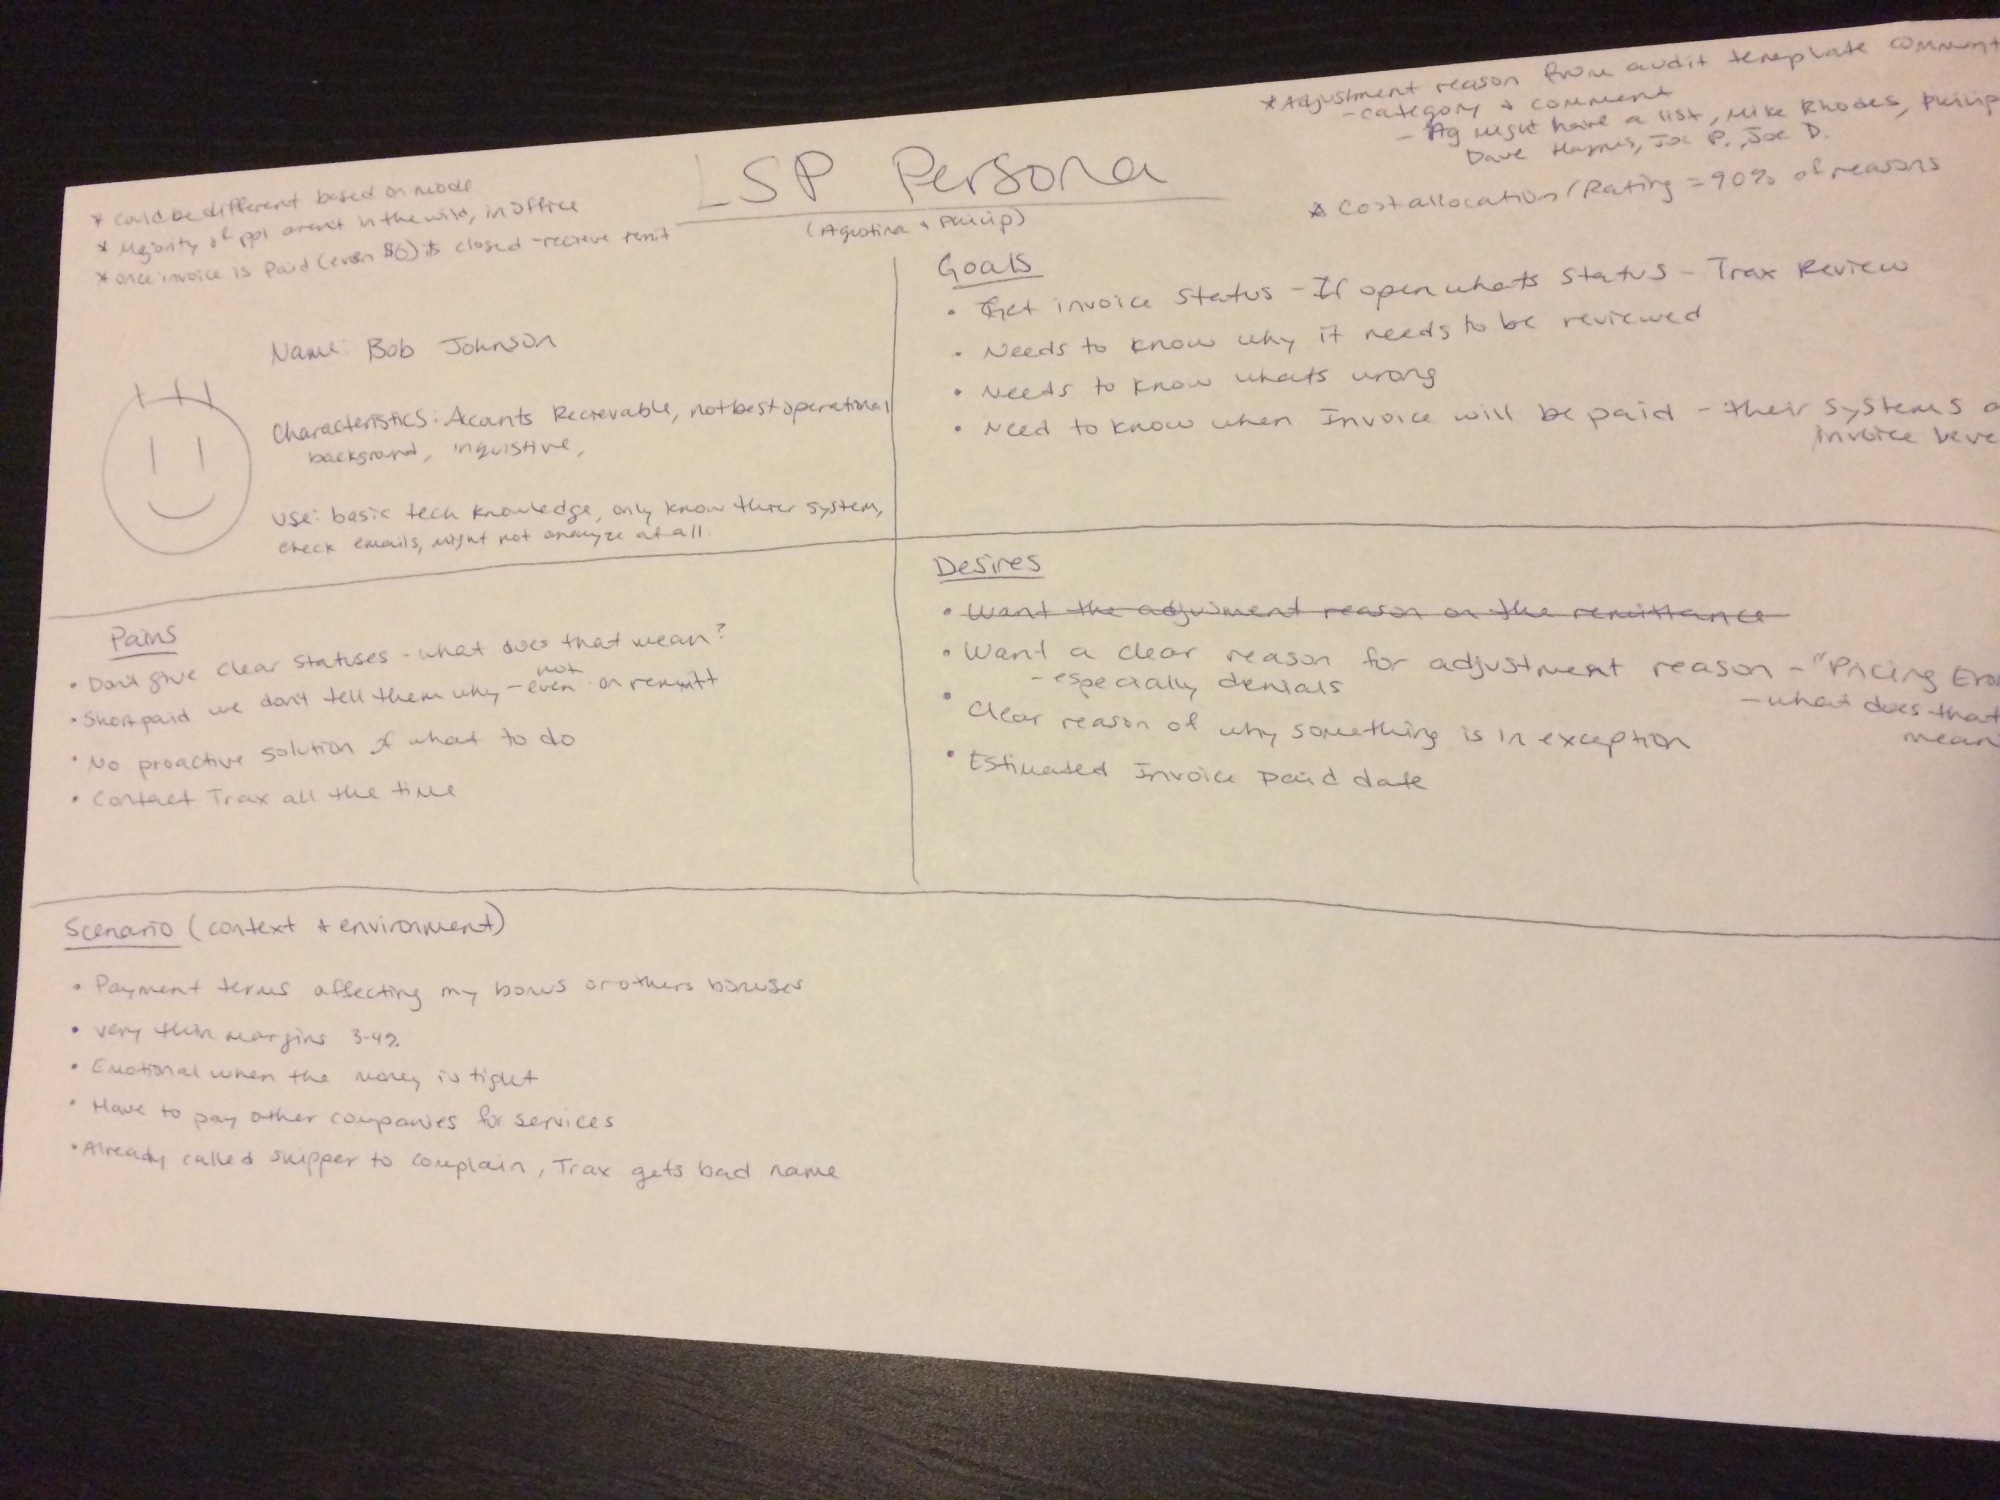 LSP Persona
(Agustina + Philip)
* could be different based on mode
* Majority of ppl arent in the wild, in office
* once invoice is Paid (even $0) its closed - recieve remit
* Adjustment reason from audit template comment
- category + comment
- Ag might have a list, Mike Rhodes, Philip
Dave Haynes, Joe P., Joe D.
* Cost allocation / Rating = 90% of reasons
Name: Bob Johnson
Characteristics: Acounts Recievable, not best operational
background, inquistive,
Use: basic tech knowledge, only know their system,
check emails, might not analyze at all.
Goals
• Get invoice status - If open whats status - Trax Review
• Needs to know why it needs to be reviewed
• Needs to know whats wrong
• Need to know when Invoice will be paid - their systems
invoice
Pains
• Dont give clear statuses - what does that mean?
not
• Short paid we dont tell them why - even on remitt
• No proactive solution of what to do
• Contact Trax all the time
Desires
• Want the adjusment reason on the remittance
• Want a clear reason for adjustment reason - "Pricing
- especially denials
- what does that
mean
• Clear reason of why something is in exception
• Estimated Invoice paid date
Scenario (context + environment)
• Payment terms affecting my bonus or others bonuses
• very thin margins 3-4%
• Emotional when the money is tight
• Have to pay other companies for services
• Already called shipper to complain, Trax gets bad name